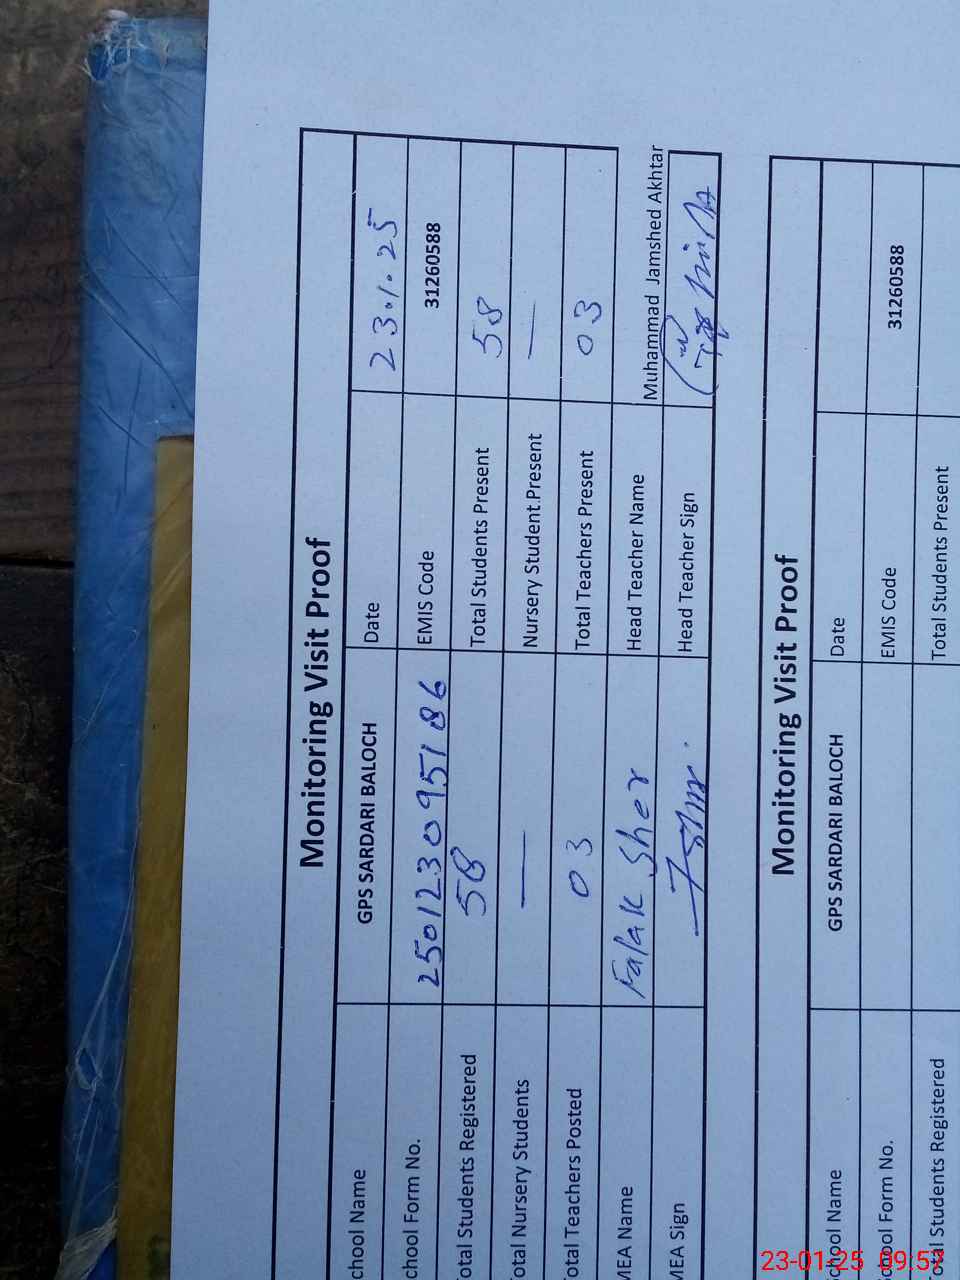 Monitoring Visit Proof
chool Name GPS SARDARI BALOCH Date 23.1.25
chool Form No. 250123095186 EMIS Code 31260588
otal Students Registered 58 Total Students Present 58
otal Nursery Students — Nursery Student.Present —
otal Teachers Posted 03 Total Teachers Present 03
MEA Name Falak Sher Head Teacher Name Muhammad Jamshed Akhtar
MEA Sign Head Teacher Sign
Monitoring Visit Proof
chool Name GPS SARDARI BALOCH Date
chool Form No. EMIS Code 31260588
otal Students Registered Total Students Present
23-01-25 09:57